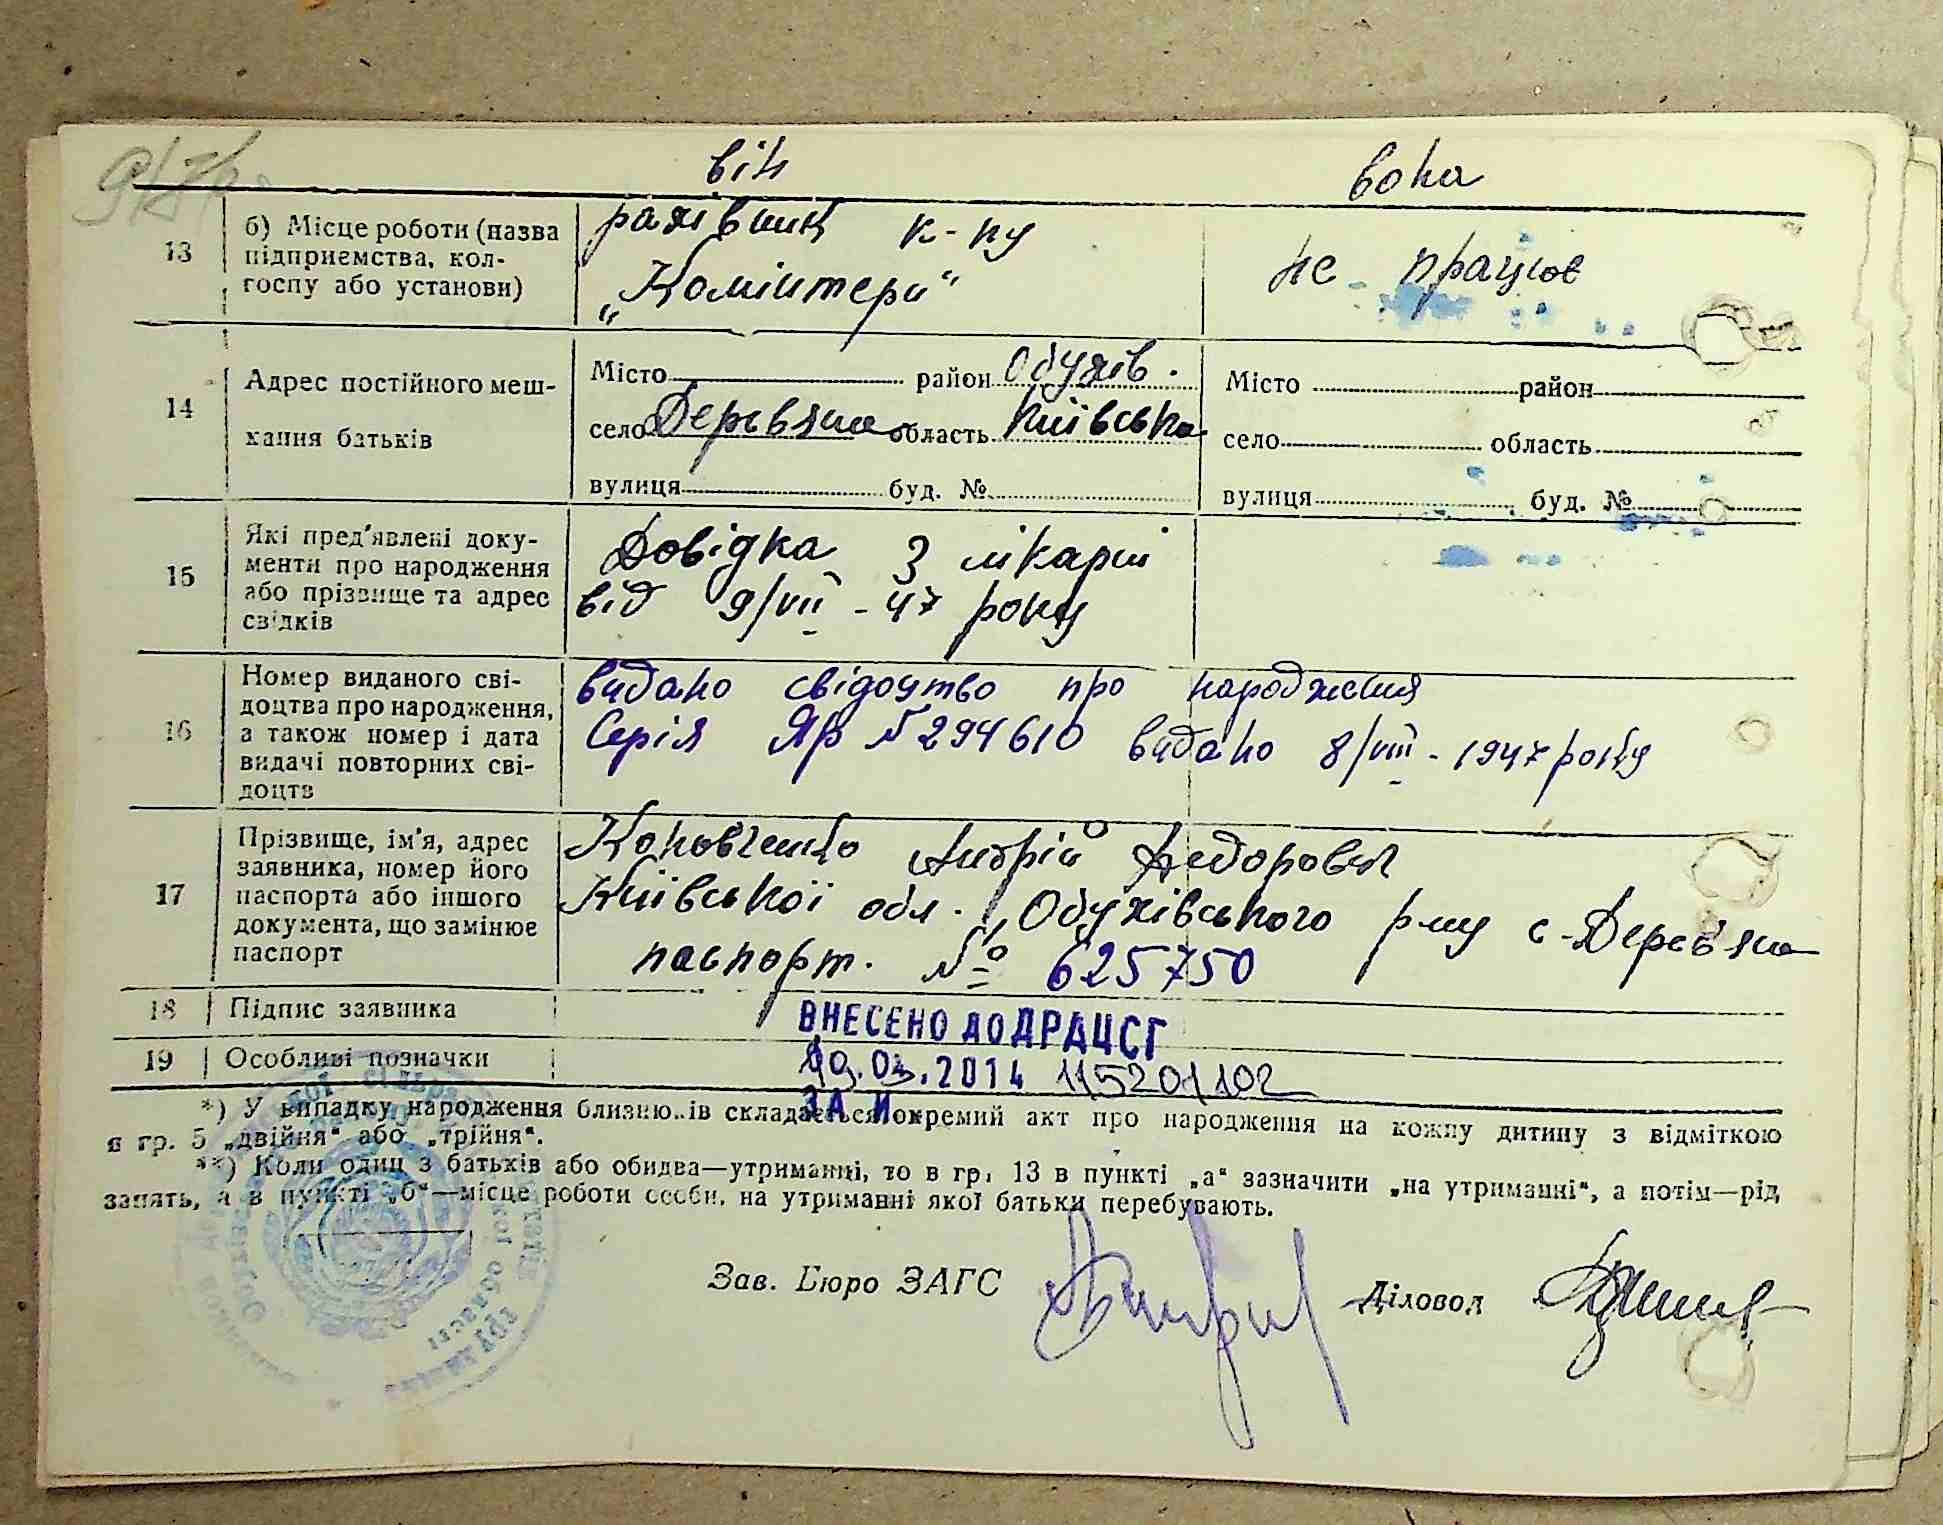 він вона
13 б) Місце роботи (назва підприємства, колгоспу або установи)
рахівниц к-пу
„Комінтерн“
не працює
14 Адрес постійного мешкання батьків
Місто район Обухів.
село Дерев'яна область Київська
вулиця буд. №
Місто район
село область
вулиця буд. №
15 Які пред'явлені документи про народження або прізвище та адрес свідків
Довідка з лікарні
від 9/VII - 47 року
16 Номер виданого свідоцтва про народження, а також номер і дата видачі повторних свідоцтв
видано свідоцтво про народження
Серія ЯР № 294610 видано 8/VIII - 1947 року
17 Прізвище, ім'я, адрес заявника, номер його паспорта або іншого документа, що замінює паспорт
Андрій Федорович
Київської обл. Обухівського р-ну с-Дерев'яна
паспорт. № 625750
18 Підпис заявника
ВНЕСЕНО ДО ДРАЦСГ
19 Особливі позначки
03.2014 115201102
ЗА И
*) У випадку народження близнюків складається окремий акт про народження на кожну дитину з відміткою
в гр. 5 „двійня“ або „трійня“.
**) Коли один з батьків або обидва—утриманні, то в гр. 13 в пункті „а“ зазначити „на утриманні“, а потім—рід
занять, а в пункті „б“—місце роботи особи, на утриманні якої батьки перебувають.
Зав. Бюро ЗАГС Діловод